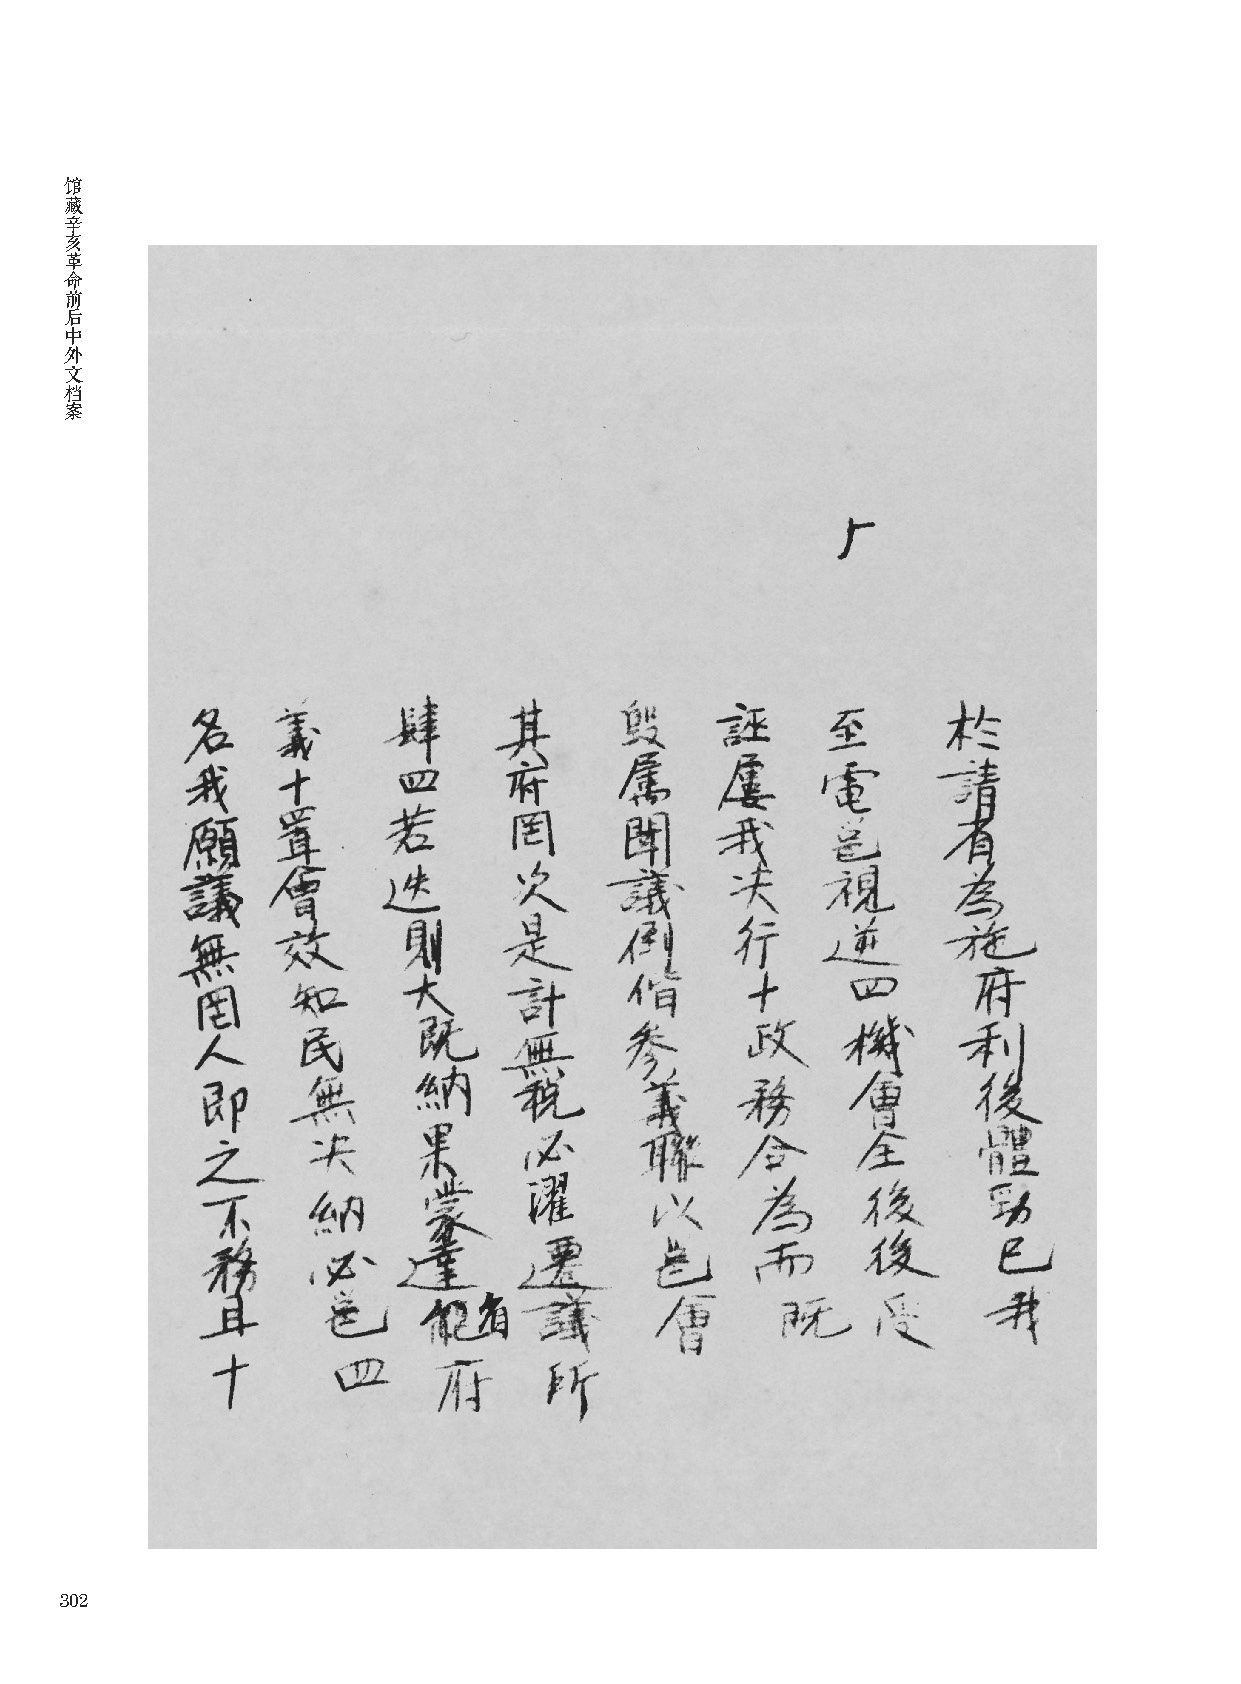 於請有為施府利後體勁已我
至電邕視逆四機會全後後受
誣屢我决行十政務合為而既
毁屬聞議例偕參義聯以邕會
其府罔次是計無税必濯遷議所
肆四若迭則大既納果蒙達能省府
義十置會效知民無决納必邕四
名我願議無罔人即之不務且十
馆藏辛亥革命前后中外文档案
302